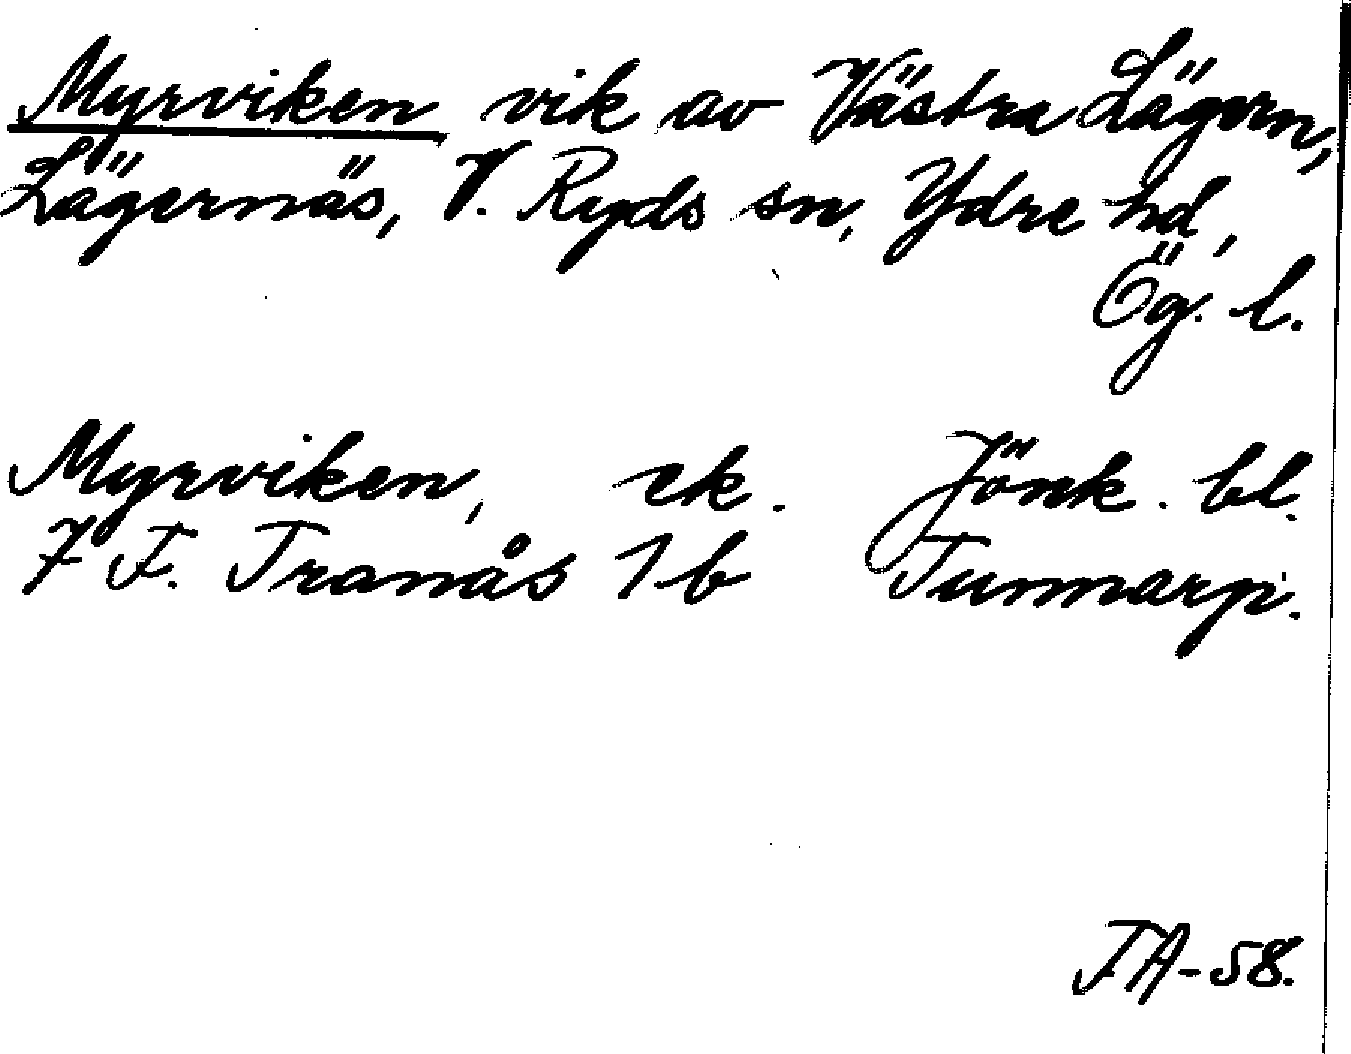 Myrviken vik av Västra Lägern,
Lägernäs, V. Ryds sn, Ydre hd,
Ög. l.
Myrviken, ek. Jönk. bl.
7 F. Tranås 1 b Tunnarp.
FA-58.